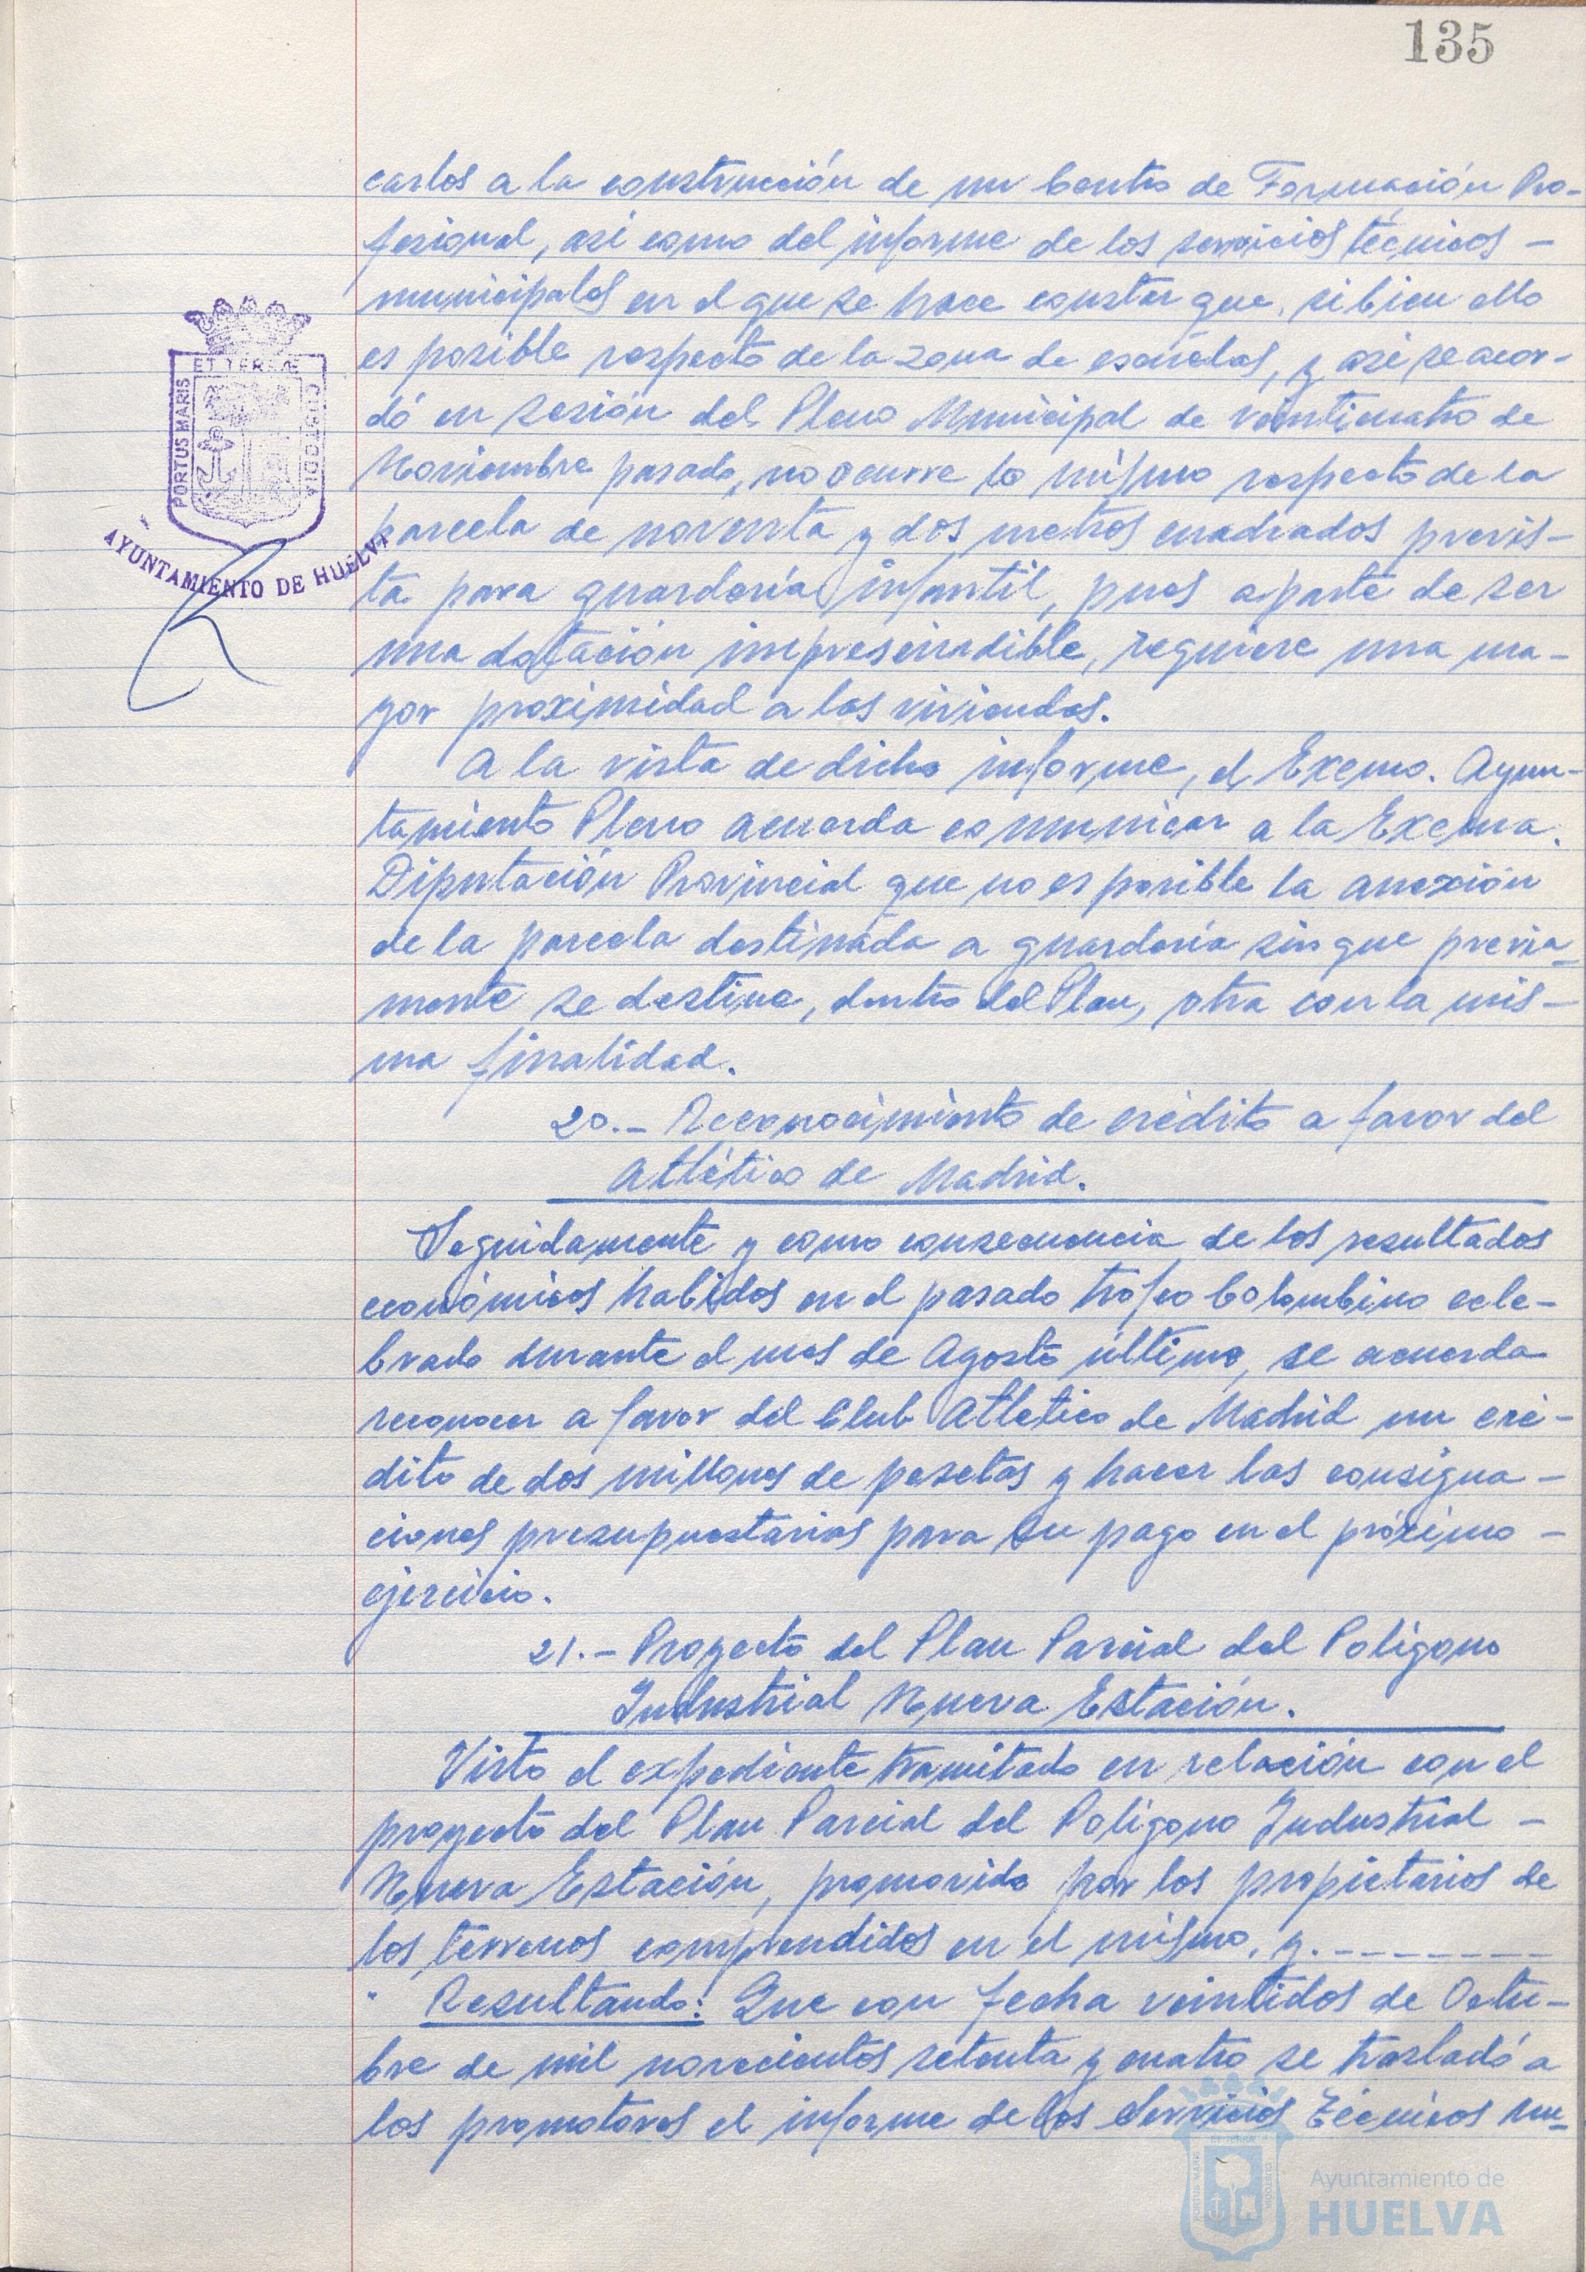 135
carlos a la construcción de un Centro de Formación Pro-
fesional, así como del informe de los servicios técnicos -
municipales en el que se hace constar que, si bien ello
es posible respecto de la zona de escuelas, y así se acor-
dó en sesión del Pleno Municipal de veinticuatro de
Noviembre pasado, no ocurre lo mismo respecto de la
parcela de noventa y dos metros cuadrados previs-
ta para guardería infantil, pues aparte de ser
una dotación imprescindible, requiere una ma-
yor proximidad a las viviendas.
A la vista de dicho informe, el Excmo. Ayun-
tamiento Pleno acuerda comunicar a la Excma.
Diputación Provincial que no es posible la anexión
de la parcela destinada a guardería sin que previa-
mente se destine, dentro del Plan, otra con la mis-
ma finalidad.
20.- Reconocimiento de crédito a favor del
Atlético de Madrid.
Seguidamente y como consecuencia de los resultados
económicos habidos en el pasado trofeo Colombino cele-
brado durante el mes de Agosto último, se acuerda
reconocer a favor del Club Atlético de Madrid un cré-
dito de dos millones de pesetas y hacer las consigna-
ciones presupuestarias para su pago en el próximo -
ejercicio.
21.- Proyecto del Plan Parcial del Polígono
Industrial Nueva Estación.
Visto el expediente tramitado en relación con el
proyecto del Plan Parcial del Polígono Industrial -
Nueva Estación, promovido por los propietarios de
los terrenos comprendidos en el mismo, y.--------
Resultando: Que con fecha veintidos de Octu-
bre de mil novecientos setenta y cuatro se trasladó a
los promotores el informe de los Servicios Técnicos mu-
PORTUS MARIS
ET TERRAE
CUSTODIA
AYUNTAMIENTO DE HUELVA
Ayuntamiento de
HUELVA